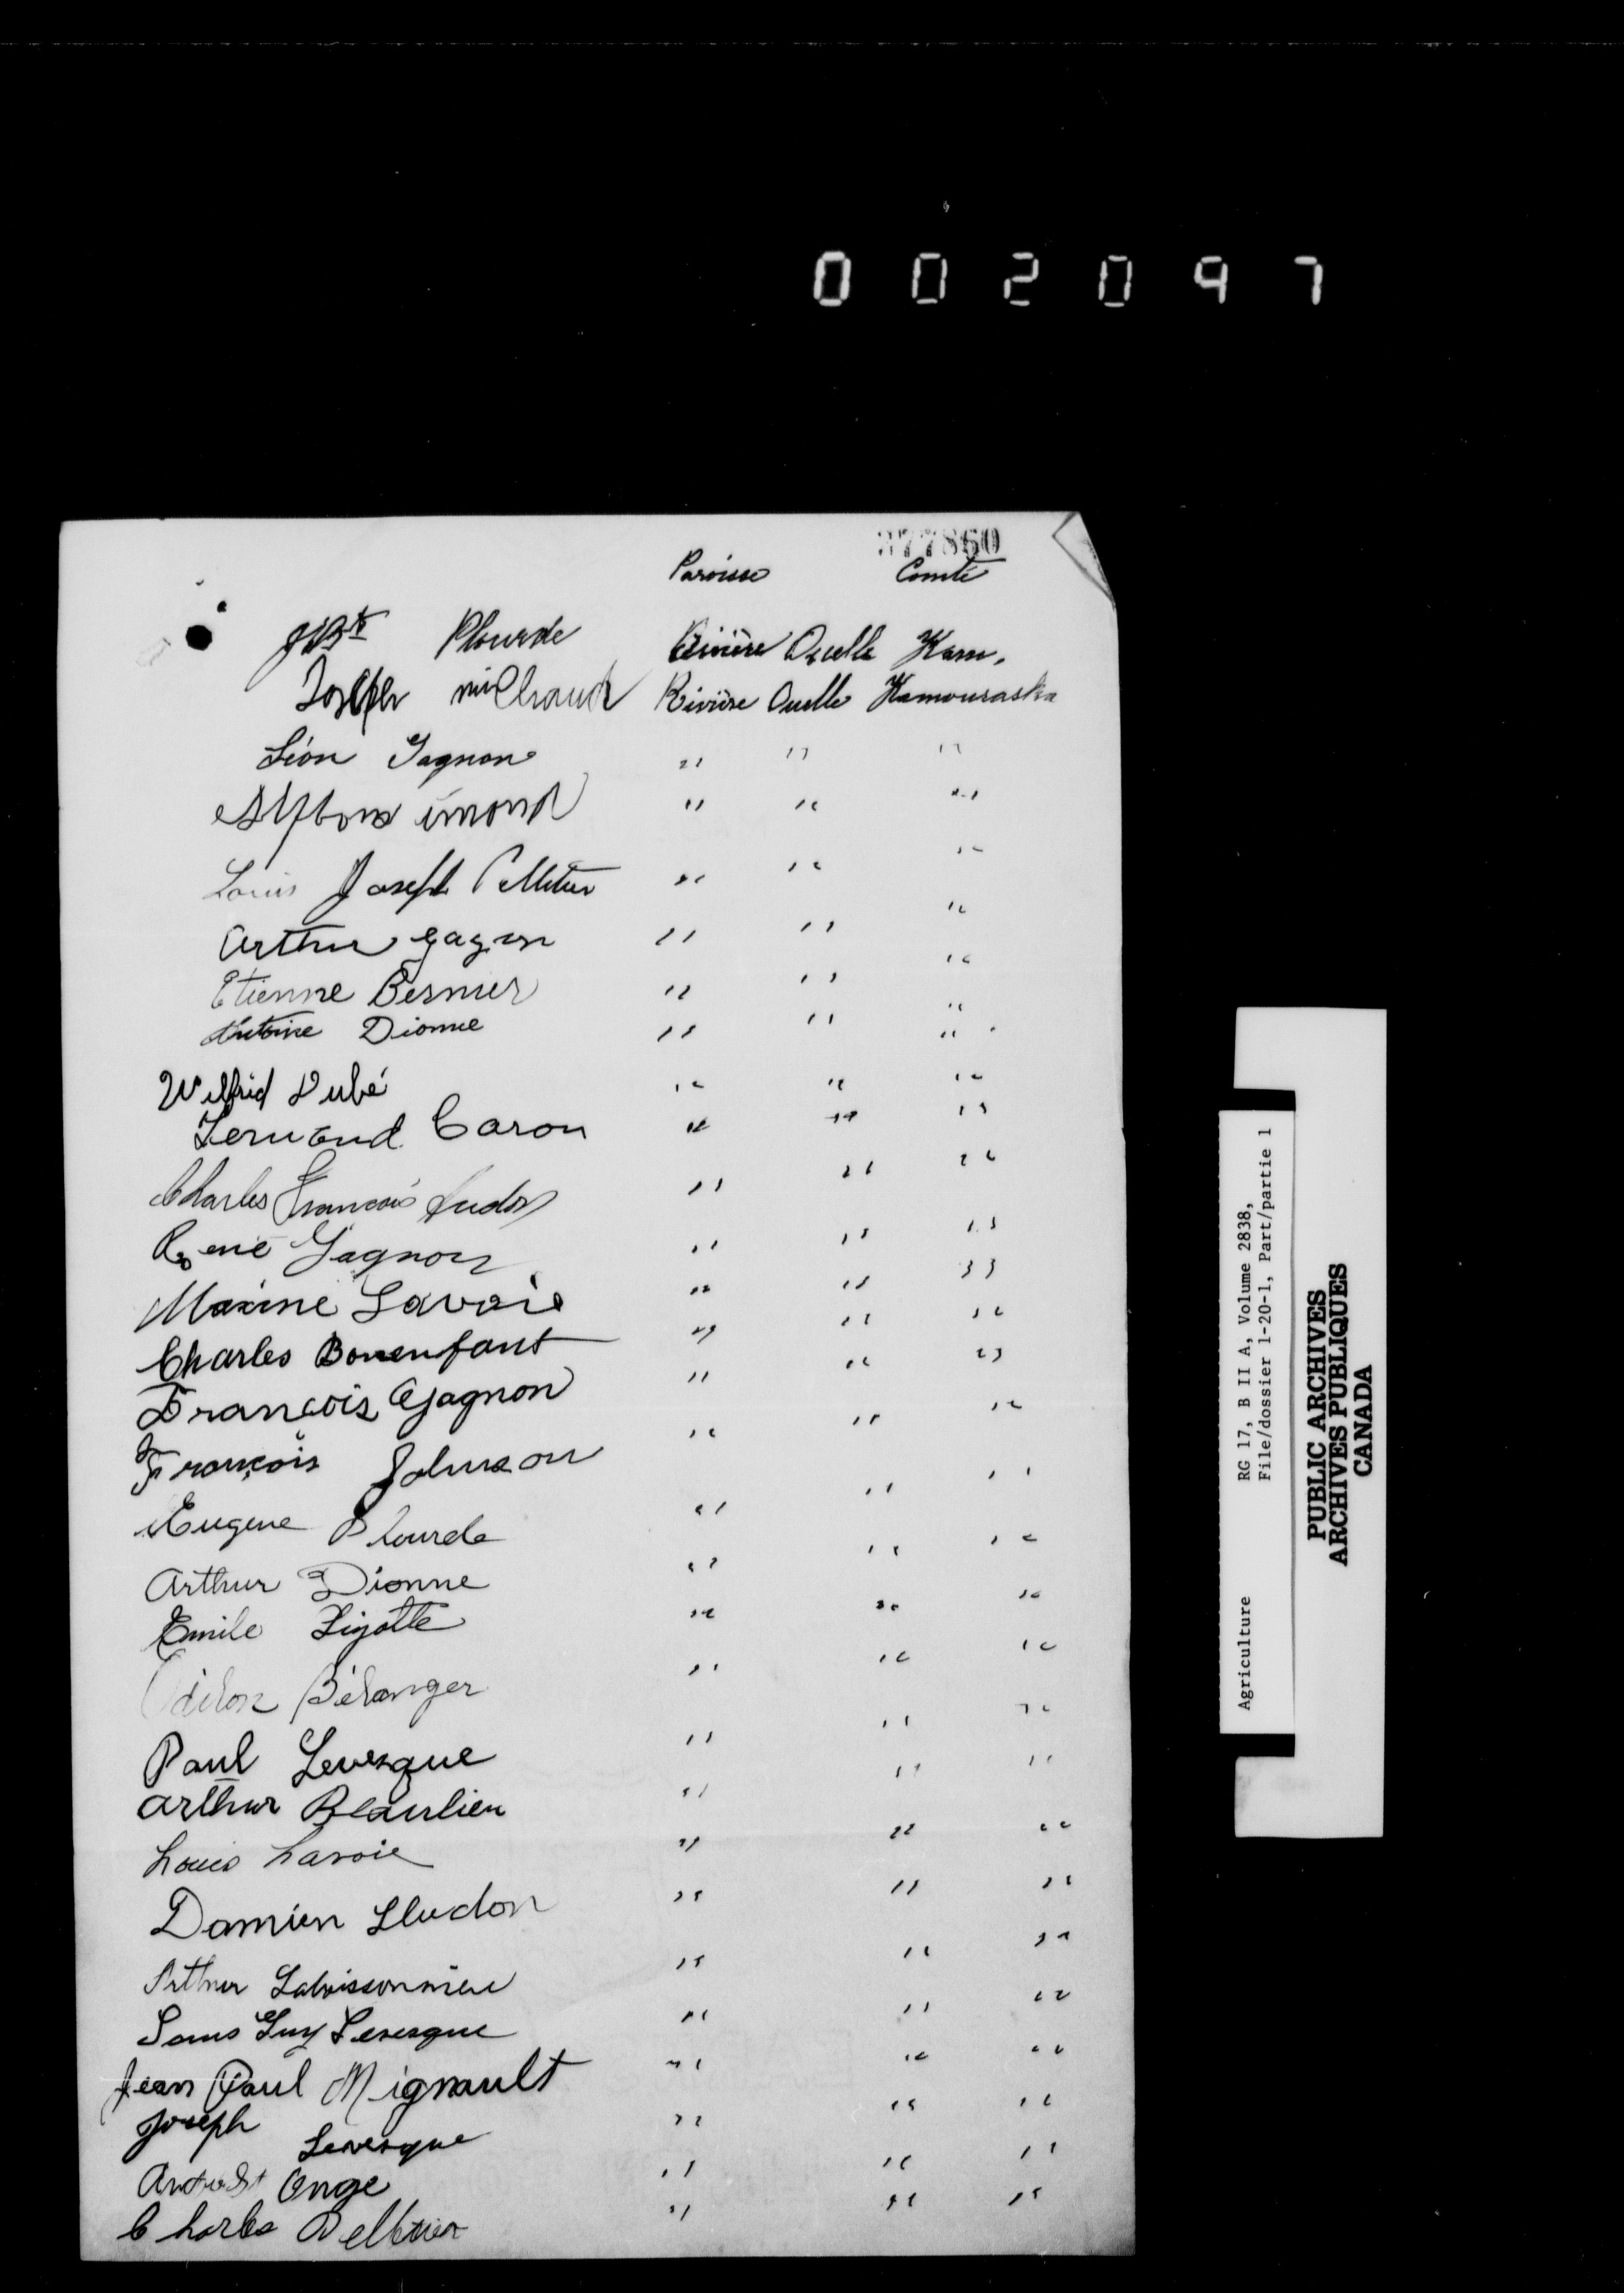 002097
377860
Paroisse Comté
JBte Plourde Rivière Ouelle Kam.
Joseph michaud Rivière Ouelle Kamouraska
Léon Gagnon " " "
Alphons imond " " "
Louis Joseph Pelletier " " "
Arthur gagnon " " "
Etienne Bernier " " "
Antoine Dionne " " "
Wilfrid Dubé " " "
Fernand Caron " " "
Charles François Hudon " " "
René Gagnon " " "
Maxime Lavoie " " "
Charles Bonenfant " " "
François Gagnon " " "
François Johnson " " "
Eugene Plourde " " "
Arthur Dionne " " "
Emile Lizotte " " "
Odilon Bélanger " " "
Paul Levesque " " "
Arthur Beaulieu " " "
Louis Lavoie " " "
Damien Hudon " " "
Arthur Laboissonniere " " "
Louis Guy Levesque " " "
Jean Paul Mignault " " "
Joseph Levesque " " "
St Onge " " "
Charles Pelletier " " "
Agriculture RG 17, B II A, Volume 2838,
File/dossier 1-20-1, Part/partie 1
PUBLIC ARCHIVES
ARCHIVES PUBLIQUES
CANADA